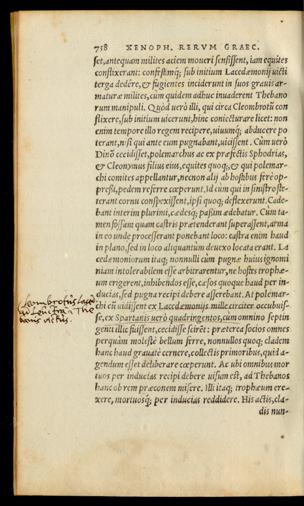 758 XENOPH. RERUM GRAEC.
set, antequam milites aciem moueri sensissent, iam equites
conflixerant: confestimq; sub initium Lacedæmonij uicti
terga dedêre, & fugientes inciderunt in suos grauis ar-
maturæ milites, cùm quidem adhuc inuaderent Thebano
rum manipuli. Quòd uerò illi, qui circa Cleombrotũ con
flixere, sub initium uicerunt, hinc coniecturare licet: non
enim tempore illo regem recipere, uiuumq; abducere po
terant, nisi qui ante eum pugnabant, uicissent. Cùm uerò
Dinõ cecidisset, polemarchus ac ex præfectis Sphodrias,
& Cleonymus filius eius, equites quoq;, & qui polemar-
chi comites appellantur, necnon alij ab hostibus ferè op-
pressi, pedem referre cœperunt, id cùm qui in sinistro ste-
terant cornu conspexissent, ipsi quoq; deflexerunt. Cade-
bant interim plurimi, cædesq; passim ædebatur. Cùm ta-
men fossam quam castris prætenderant superassent, arma
in eo unde processerant ponebant loco: castra enim haud
in plano, sed in loco aliquantùm deuexo locata erant. La
cedæmoniorum itaq; nonnulli cùm pugnæ huius ignomi
niam intolerabilem esse arbitrarentur, ne hostes trophæ-
um erigerent, inhibendos esse, cæsos quoque haud per in-
ducias, sed pugna recipi debere asserebant. At polemar-
chi cũ uidissent ex Lacedæmonijs mille circiter occubuis-
se, ex Spartanis uerò quadringentos, cùm omnino septin
genti illic fuissent, cecidisse scirẽt: præterea socios omnes
perquàm molestè bellum ferre, nonnullos quoq; cladem
hanc haud grauatè cernere, collectis primoribus, quid a-
gendum esset deliberare cœperunt. Ac ubi omnibus mor
tuos per inducias recipi debere uisum est, ad Thebanos
hanc ob rem præconem misere. Illi itaq; trophæum ere-
xere, mortuosq; per inducias reddidere. His actis, cla-
dis nun-